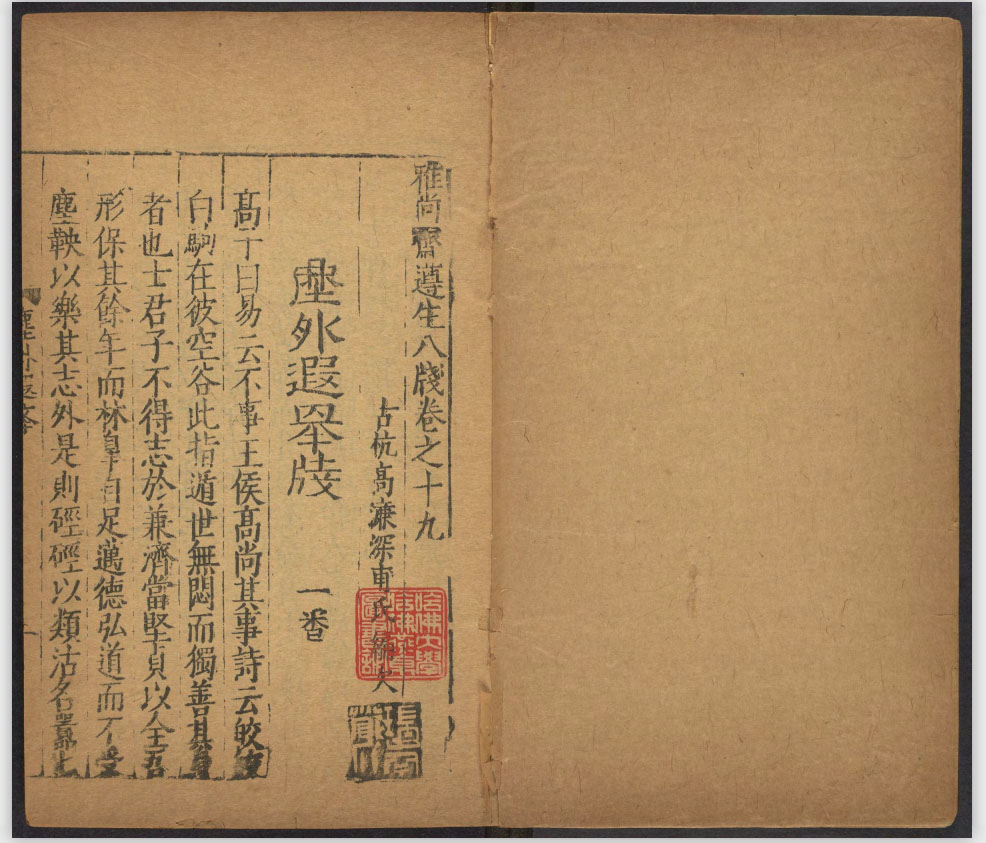 雅尚齋遵生八牋卷之十九
古杭高濂深甫氏編次
塵外遐舉牋 一卷
髙子曰易云不事王侯髙尚其事詩云皎皎
白駒在彼空谷此指遁世無悶而獨善其身
者也士君子不得志於兼濟當堅貞以全吾
形保其餘年而林皐自足邁德弘道而不受
塵鞅以樂其志外是則硜硜以類沽名嚣
哈佛大學